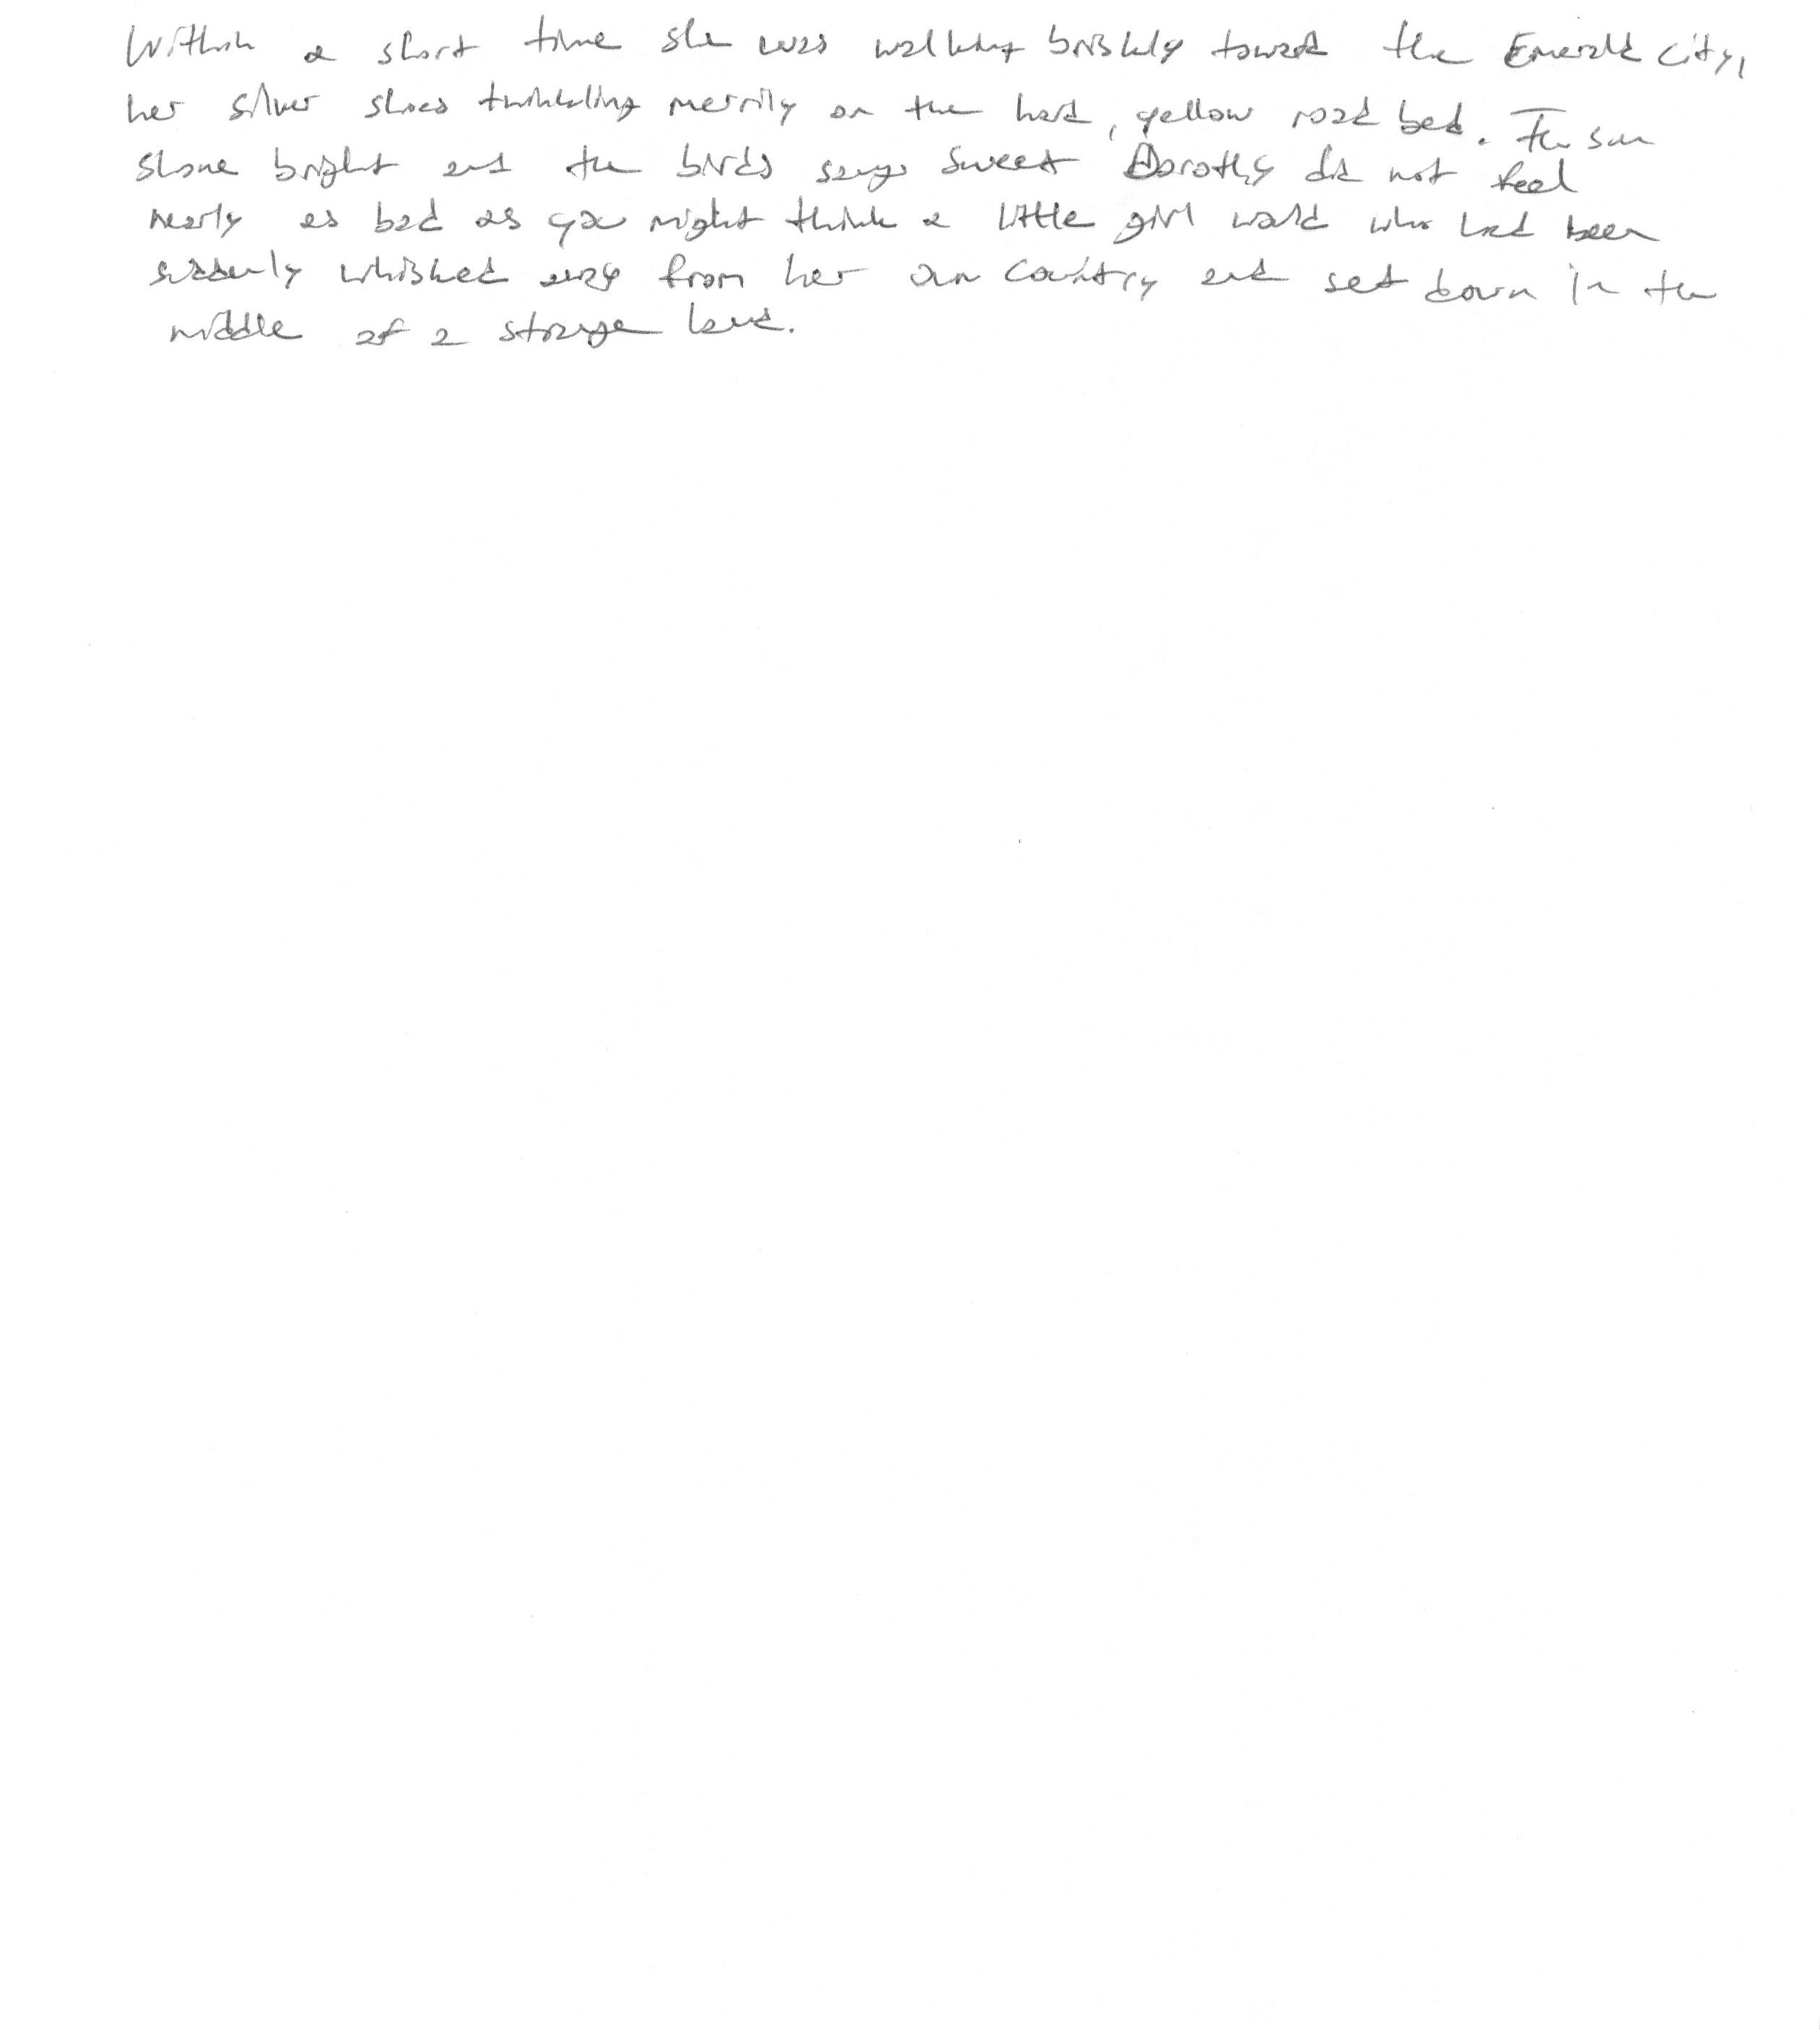 Within a short time she was walking briskly toward the Emerald City,
her silver shoes twinkling merrily on the hard, yellow road bed. The sun
shone bright and the birds sang sweet Dorothy did not feel
nearly as bad as you might think a little girl would who had been
suddenly whisked away from her own country and set down in the
middle of a strange land.